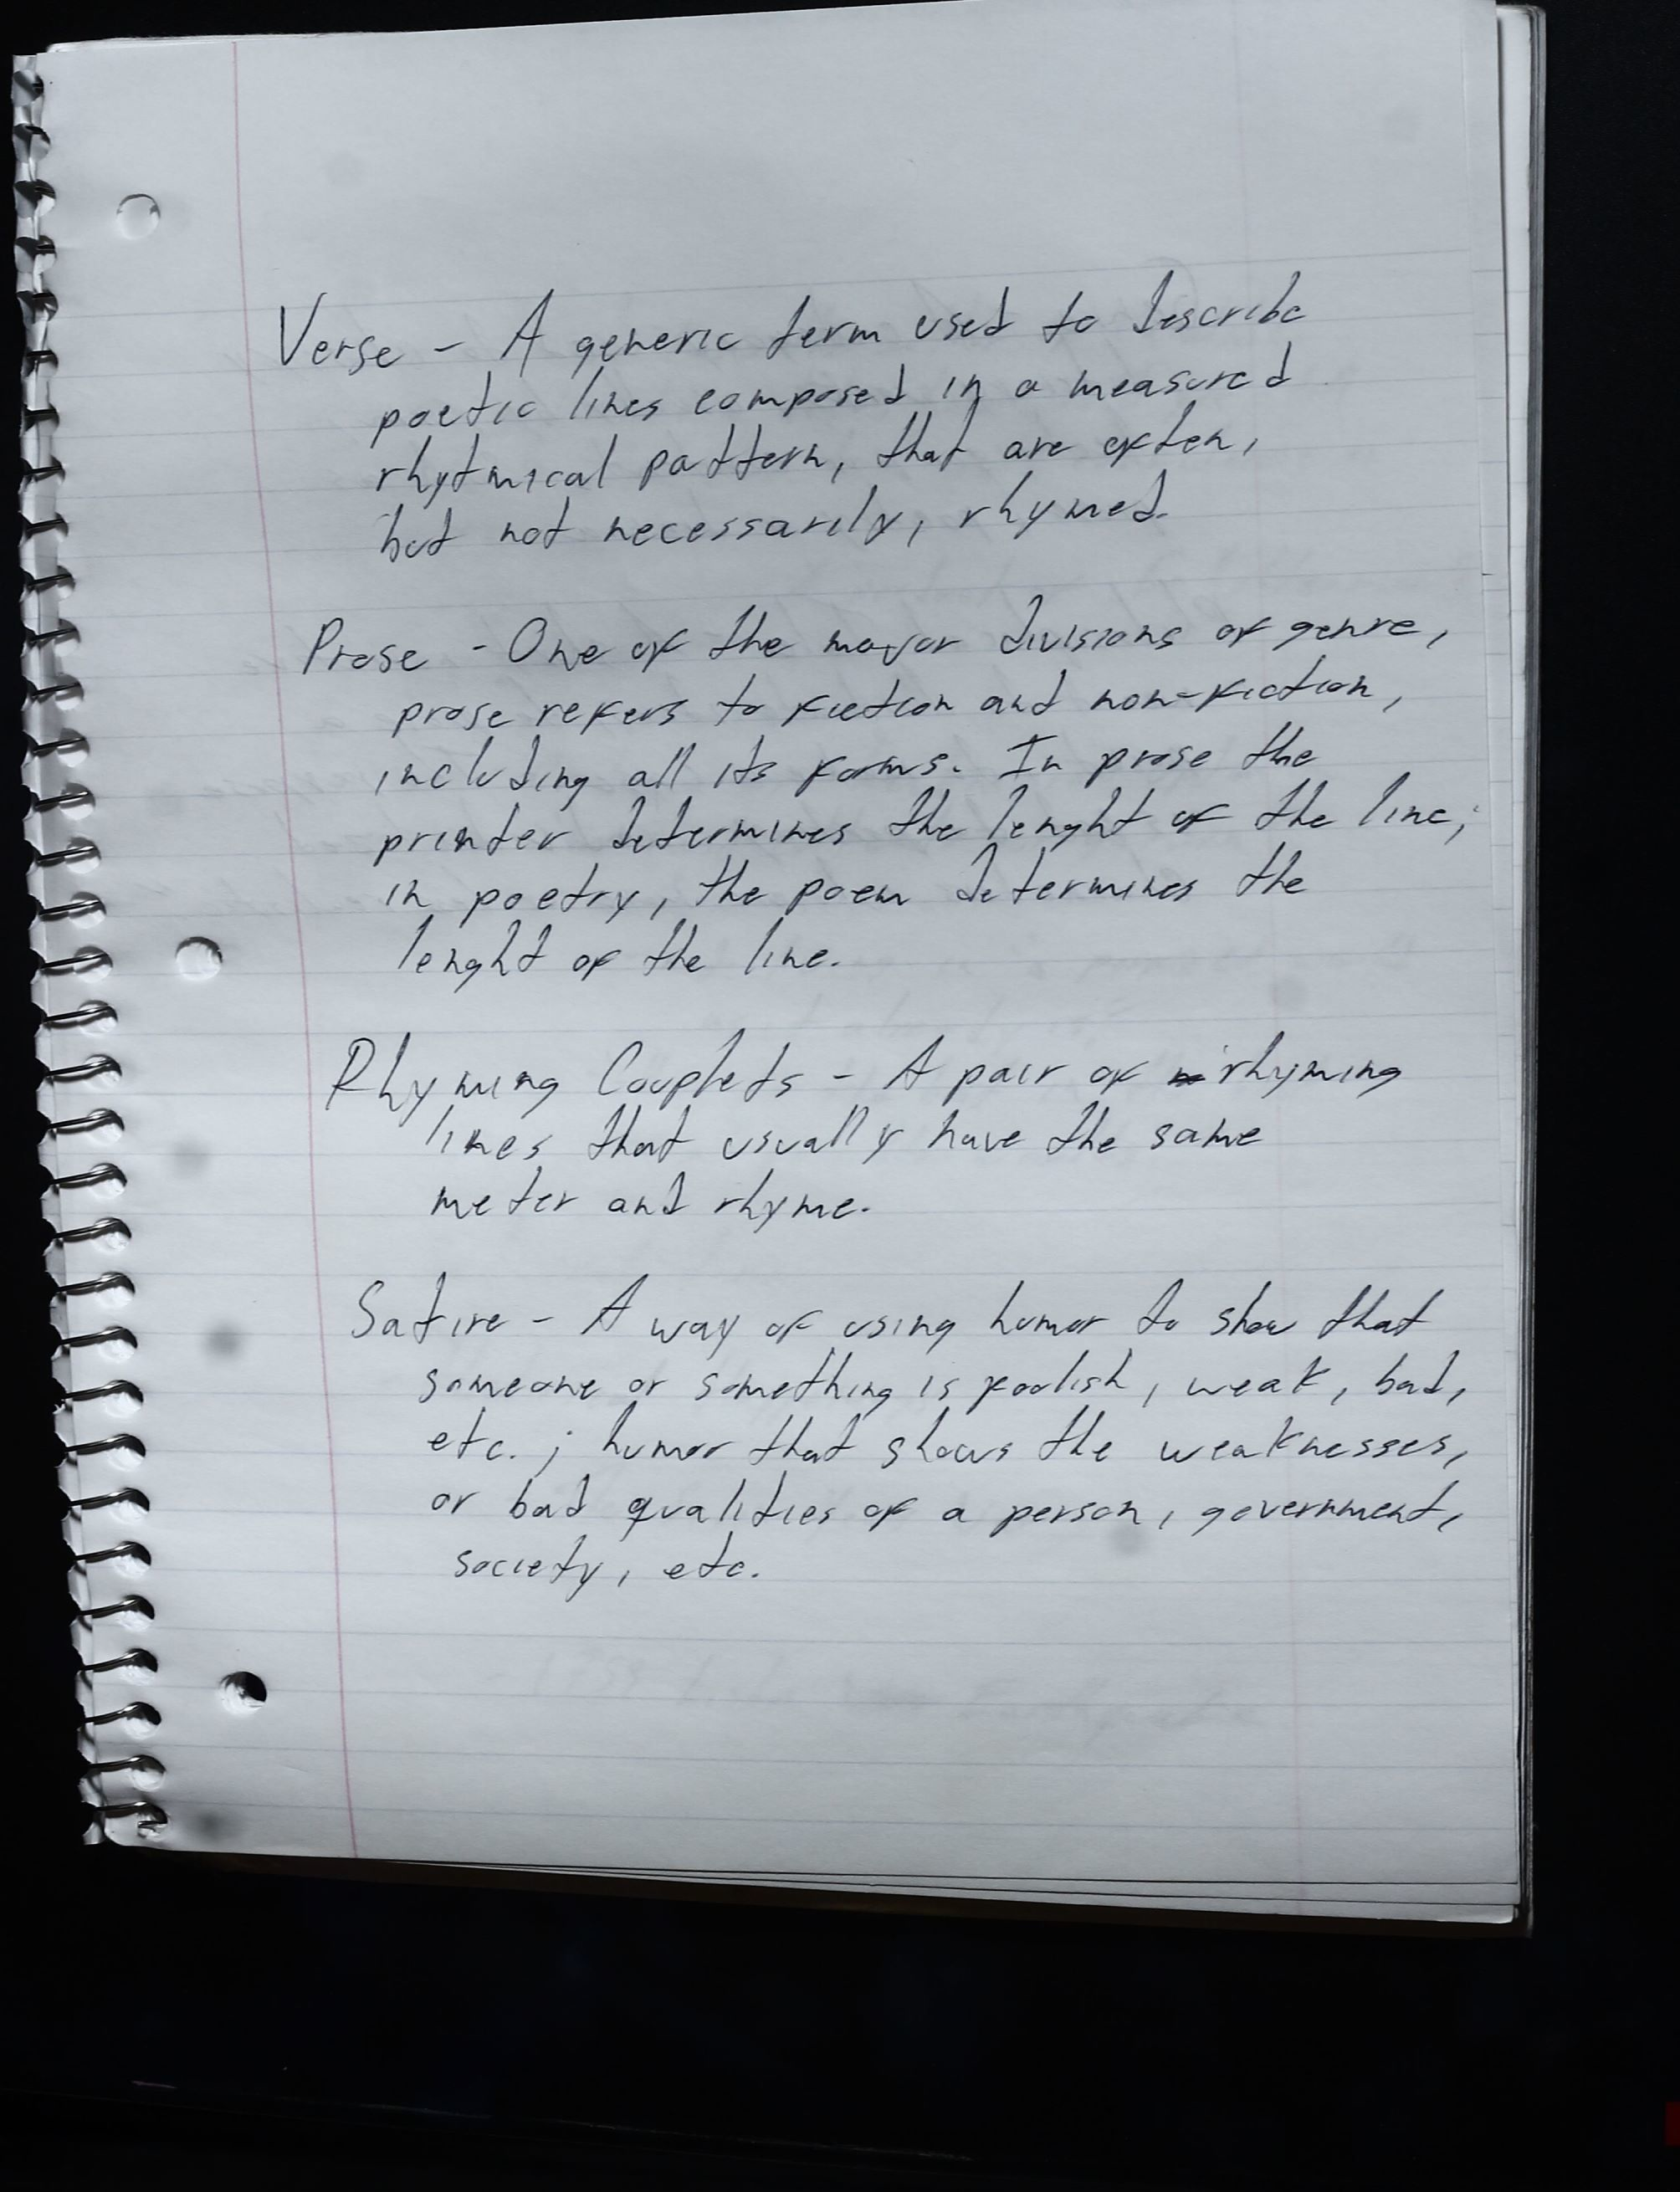 Verse - A generic term used to describe
poetic lines composed in a measured
rhytmical pattern, that are often,
but not necessarily, rhymed.
Prose - One of the major divisions of genre,
prose refers to fiction and non-fiction,
including all its forms. In prose the
printer determines the lenght of the line;
in poetry, the poem determines the
lenght of the line.
Rhyming Couplets - A pair of rhyming
lines that usually have the same
meter and rhyme.
Satire - A way of using humor to show that
someone or something is foolish, weak, bad,
etc. ; humor that shows the weaknesses,
or bad qualities of a person, government,
society, etc.